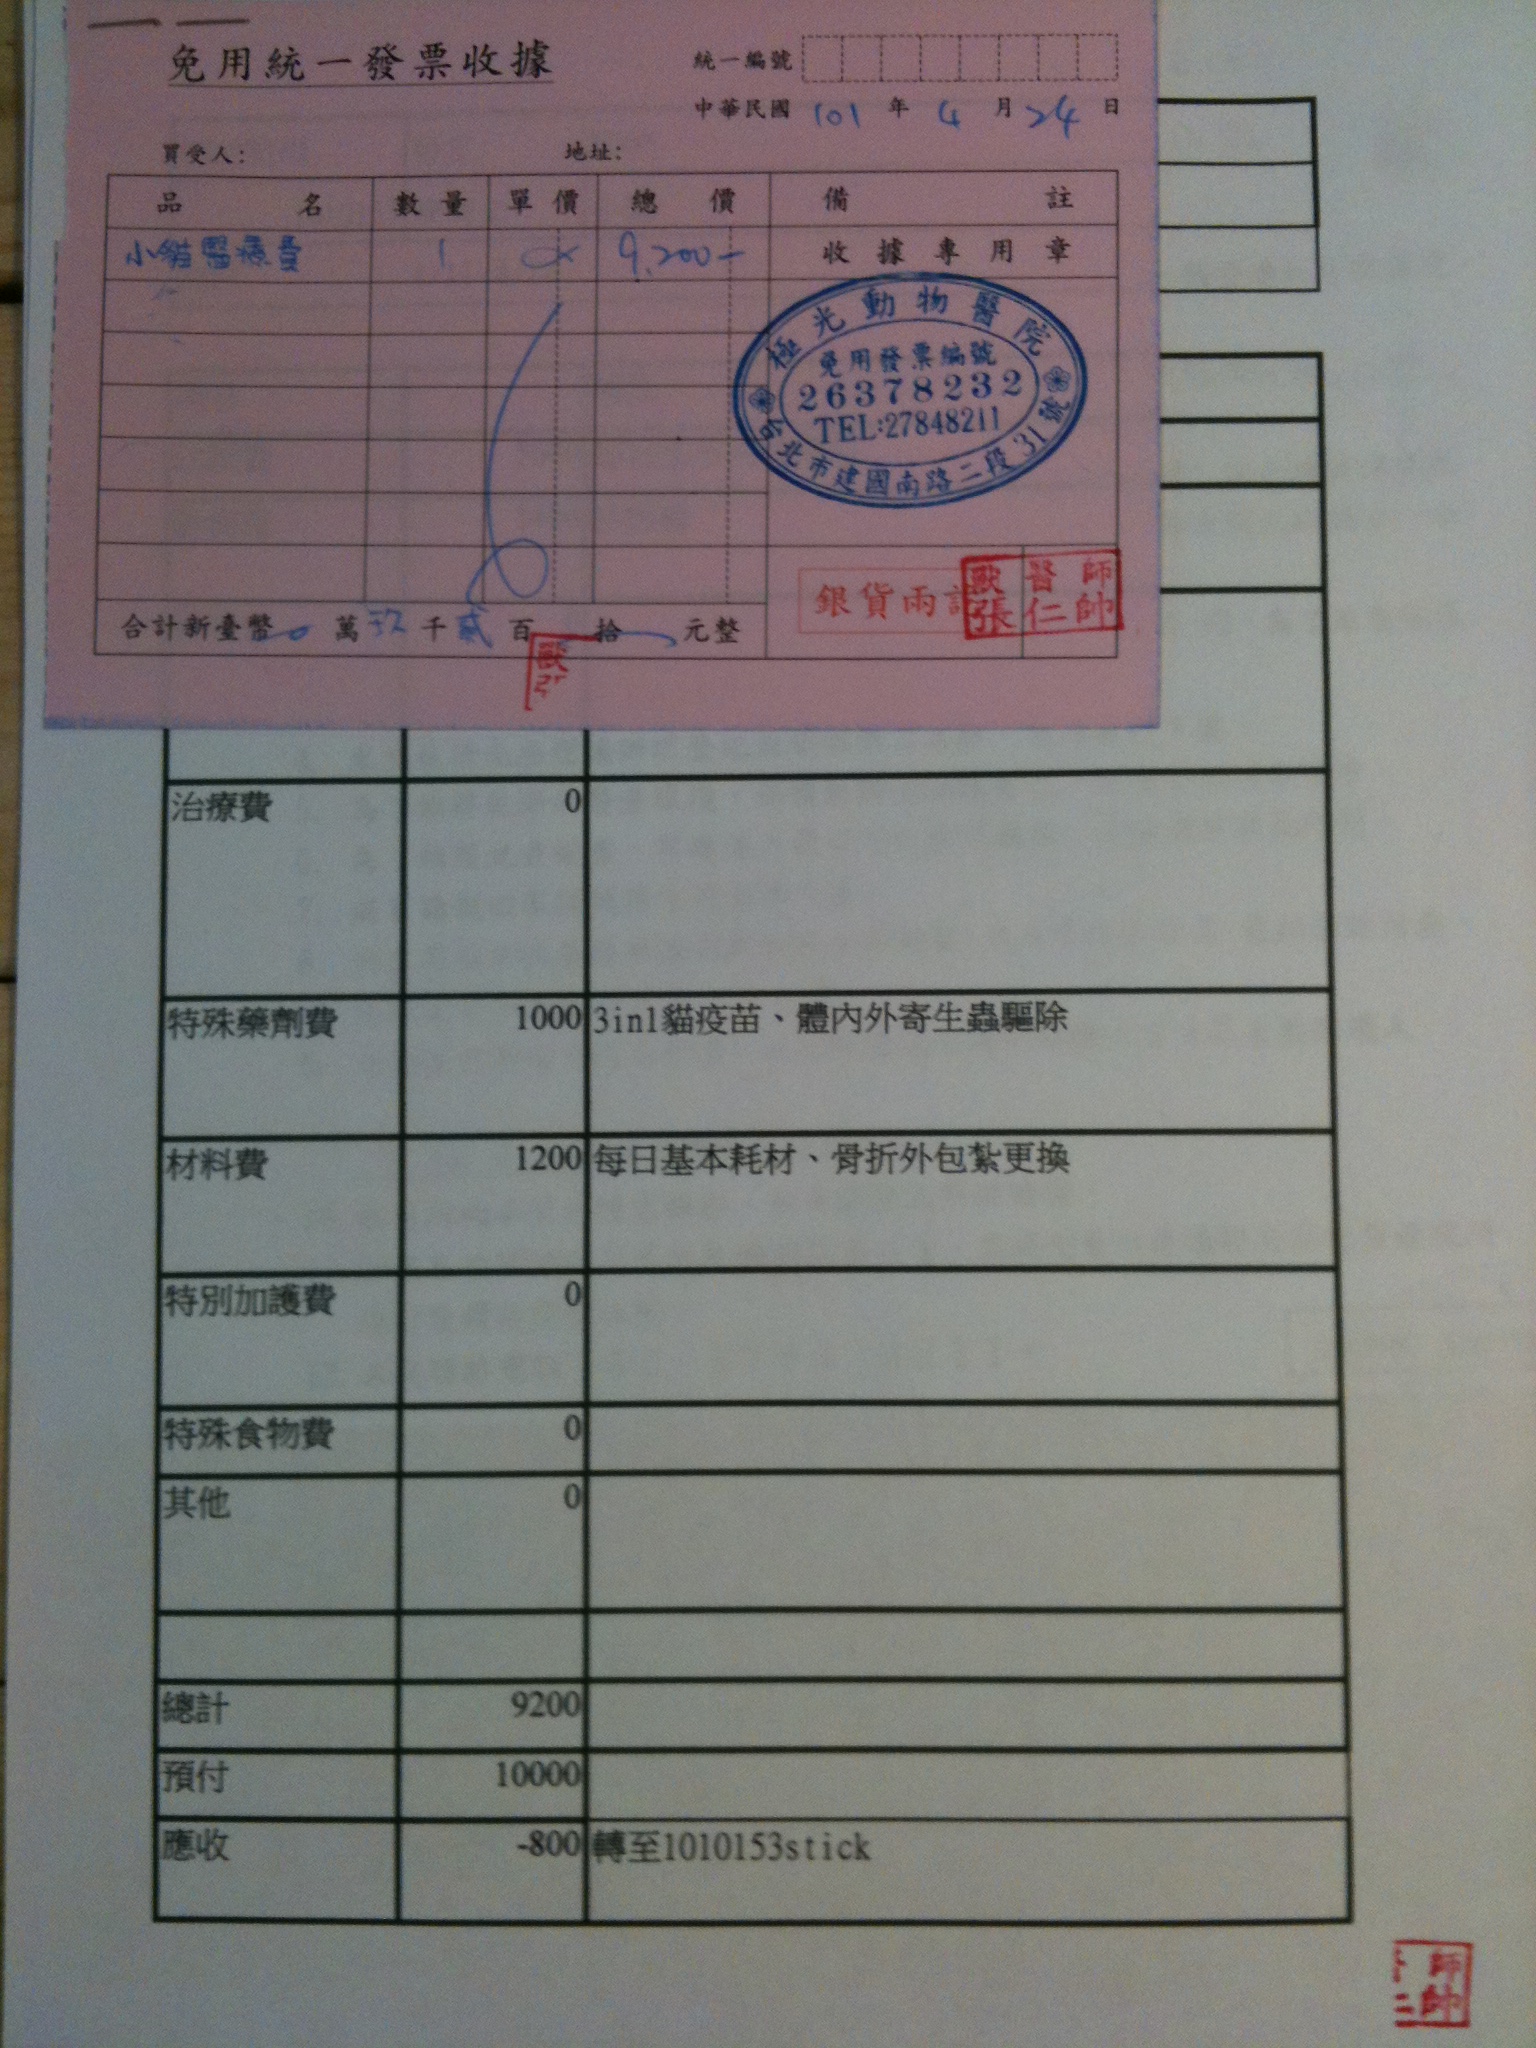 免用統一發票收據
統一編號
中華民國 101 年 4 月 24 日
買受人： 地址：
品名 數量 單價 總價 備註
小貓醫療費 1 9,200- 收據專用章
極光動物醫院
免用發票編號
26378232
TEL:27848211
台北市建國南路二段31號
銀貨兩訖
歐醫師
張仁帥
合計新臺幣 0 萬 玖 千 貳 百 拾 元整
歐
治療費 0
特殊藥劑費 1000 3in1貓疫苗、體內外寄生蟲驅除
材料費 1200 每日基本耗材、骨折外包紮更換
特別加護費 0
特殊食物費 0
其他 0
總計 9200
預付 10000
應收 -800 轉至1010153stick
師
帥